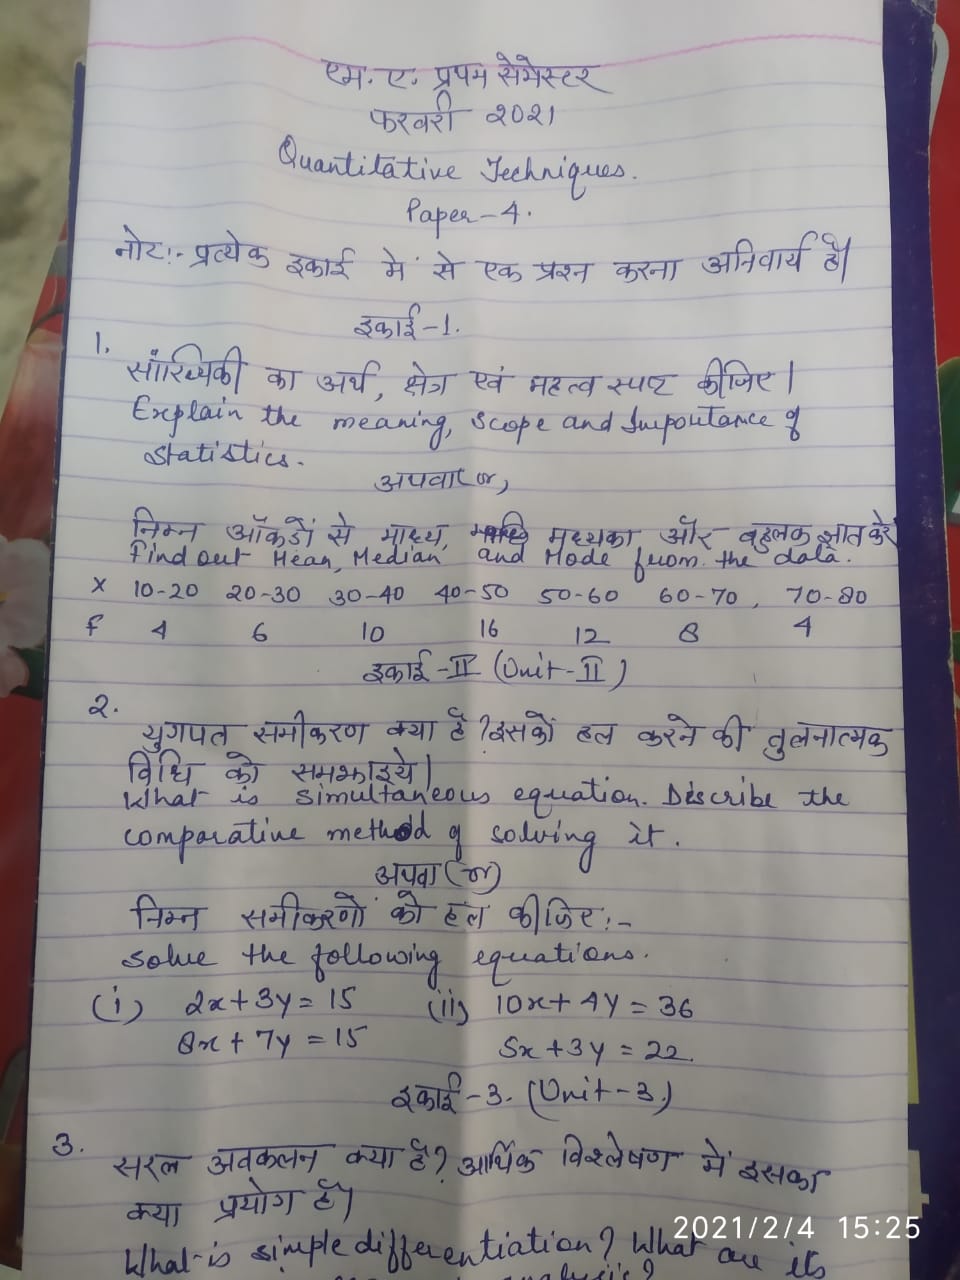 एम. ए. प्रथम सेमेस्टर
फरवरी २०२१
Quantitative Techniques.
Paper-4.
नोट:- प्रत्येक इकाई में से एक प्रश्न करना अनिवार्य है।
इकाई-1.
1.
सांख्यिकी का अर्थ, क्षेत्र एवं महत्व स्पष्ट कीजिए।
Explain the meaning, scope and Importance of
Statistics.
अथवा or,
निम्न आँकडों से माध्य, मध्यका और बहुलक ज्ञात करें
Find out Mean, Median and Mode from the data.
X 10-20 20-30 30-40 40-50 50-60 60-70, 70-80
f 4 6 10 16 12 8 4
इकाई-II (Unit-II)
2.
युगपत समीकरण क्या है? इसको हल करने की तुलनात्मक
विधि को समझाइये।
What is simultaneous equation. Discribe the
comparative method of solving it.
अथवा (or)
निम्न समीकरणों को हल कीजिए:-
solve the following equations.
(i) 2x+3y=15 (ii) 10x+4y=36
8x+7y=15 5x+3y=22.
इकाई-3. (Unit-3.)
3.
सरल अवकलन क्या है? आर्थिक विश्लेषण में इसका
क्या प्रयोग है।
What is simple differentiation? What are its
2021/2/4 15:25